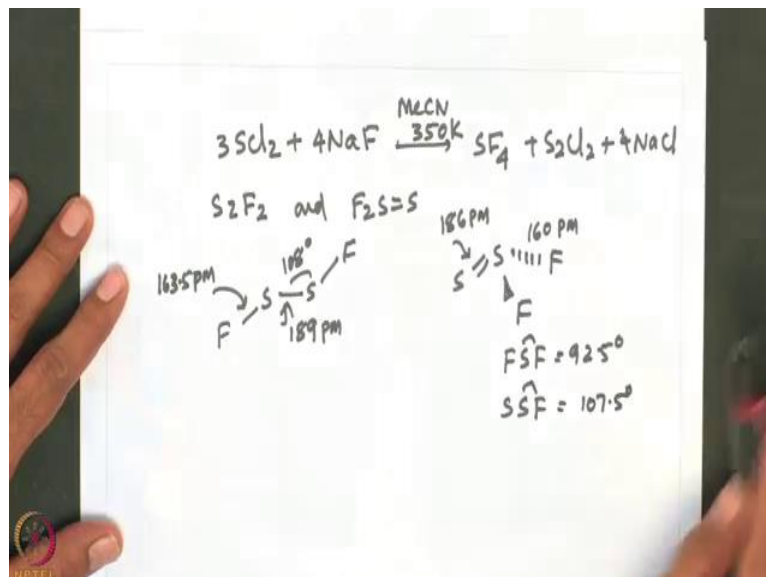 3SCl₂ + 4NaF MeCN 350K → SF₄ + S₂Cl₂ + 4NaCl
S₂F₂ and F₂S=S
163.5pm F S 108° S F 189 pm
186 pm S S 160 pm F F
FSF = 92.5°
SSF = 107.5°
NPTEL